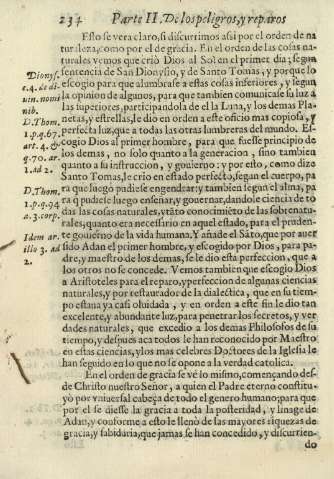 234 Parte II. De los peligros, y reparos
Esto se vera claro, si discurrimos assi por el orden de na
turaleza, como por el de gracia. En el orden de las cosas na
turales vemos que criò Dios al Sol en el primer dia; segun
Dionys. sentencia de San Dionysio, y de Santo Tomas, y porque lo
c.4. de di escogio para que alumbrasse a estas cosas inferiores, y segun
uin. nomi la opinion de algunos, para que tambien comunicasse su luz a
nib. las superiores, participandola de el la Luna, y los demas Pla
D.Thom. netas, y estrellas, le dio en orden a este oficio mas copiosa, y
1.p.q.67. perfecta luz, que a todas las otras lumbreras del mundo. Es
art.4. & cogio Dios al primer hombre, para que fuesse principio de
q.70. ar. los demas, no solo quanto a la generacion, sino tambien
1. ad 2. quanto a su instruccion, y gouierno; y por esto, como dize
D.Thom. Santo Tomas, le crio en estado perfecto, segun el cuerpo, pa
1.p.q.94 ra que luego pudiesse engendrar: y tambien segun el alma, pa
a.3. corp. ra q̃ pudiesse luego enseñar, y gouernar, dandole ciencia de to
das las cosas naturales, y tãto conocimiẽto de las sobrenatu
rales, quanto era necessario en aquel estado, para el pruden-
Idem ar- te gouierno de la vida humana. Y añade el Sãto, que por auer
tic. 3. ad sido Adan el primer hombre, y escogido por Dios, para pa-
2. dre, y maestro de los demas, se le dio esta perfeccion, que a
los otros no se concede. Vemos tambien que escogio Dios
a Aristoteles para el reparo, y perfeccion de algunas ciencias
naturales, y por restaurador de la dialectica, que en su tiem-
po estaua ya casi oluidada, y en orden a este fin le dio tan
excelente, y abundante luz, para penetrar los secretos, y ver
dades naturales, que excedio a los demas Philosofos de su
tiempo, y despues aca todos le han reconocido por Maestro
en estas ciencias, y los mas celebres Doctores de la Iglesia le
han seguido en lo que no se opone a la verdad catolica.
En el orden de gracia se vè lo mismo, començando des-
de Christo nuestro Señor, a quien el Padre eterno constitu-
yò por vniuersal cabeça de todo el genero humano; para que
por el se diesse la gracia a toda la posteridad, y linage de
Adan, y conforme a esto le llenò de las mayores riquezas de
gracia, y sabiduria, que jamas se han concedido, y discurrien-
do